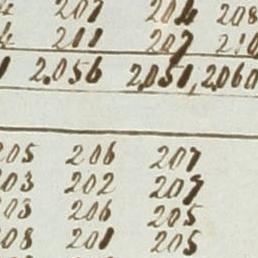 207 204 208
211 207 210
2.056 2,051, 2,060
205 206 207
203 202 207
203 206 205
208 201 205